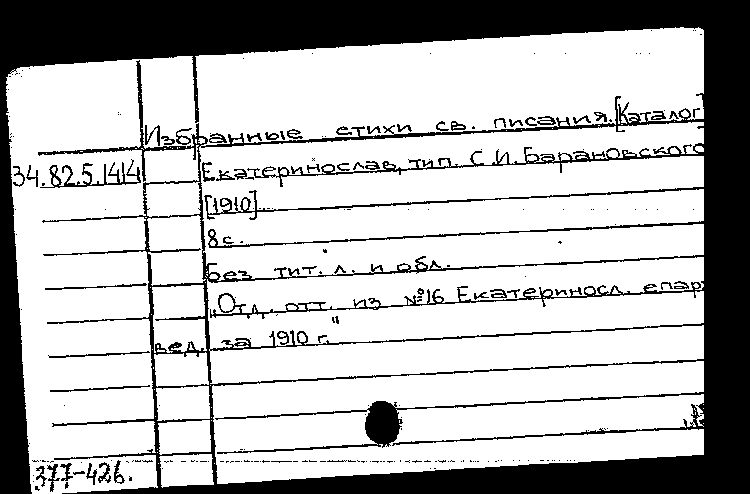 Избранные стихи св. писания. [Каталог]
34.82.5.1414 Екатеринослав, тип. С.И. Барановского
[1910]
8 с.
Без тит. л. и обл.
„Отд. отт. из №16 Екатериносл. епар
вед. за 1910 г."
377-426.